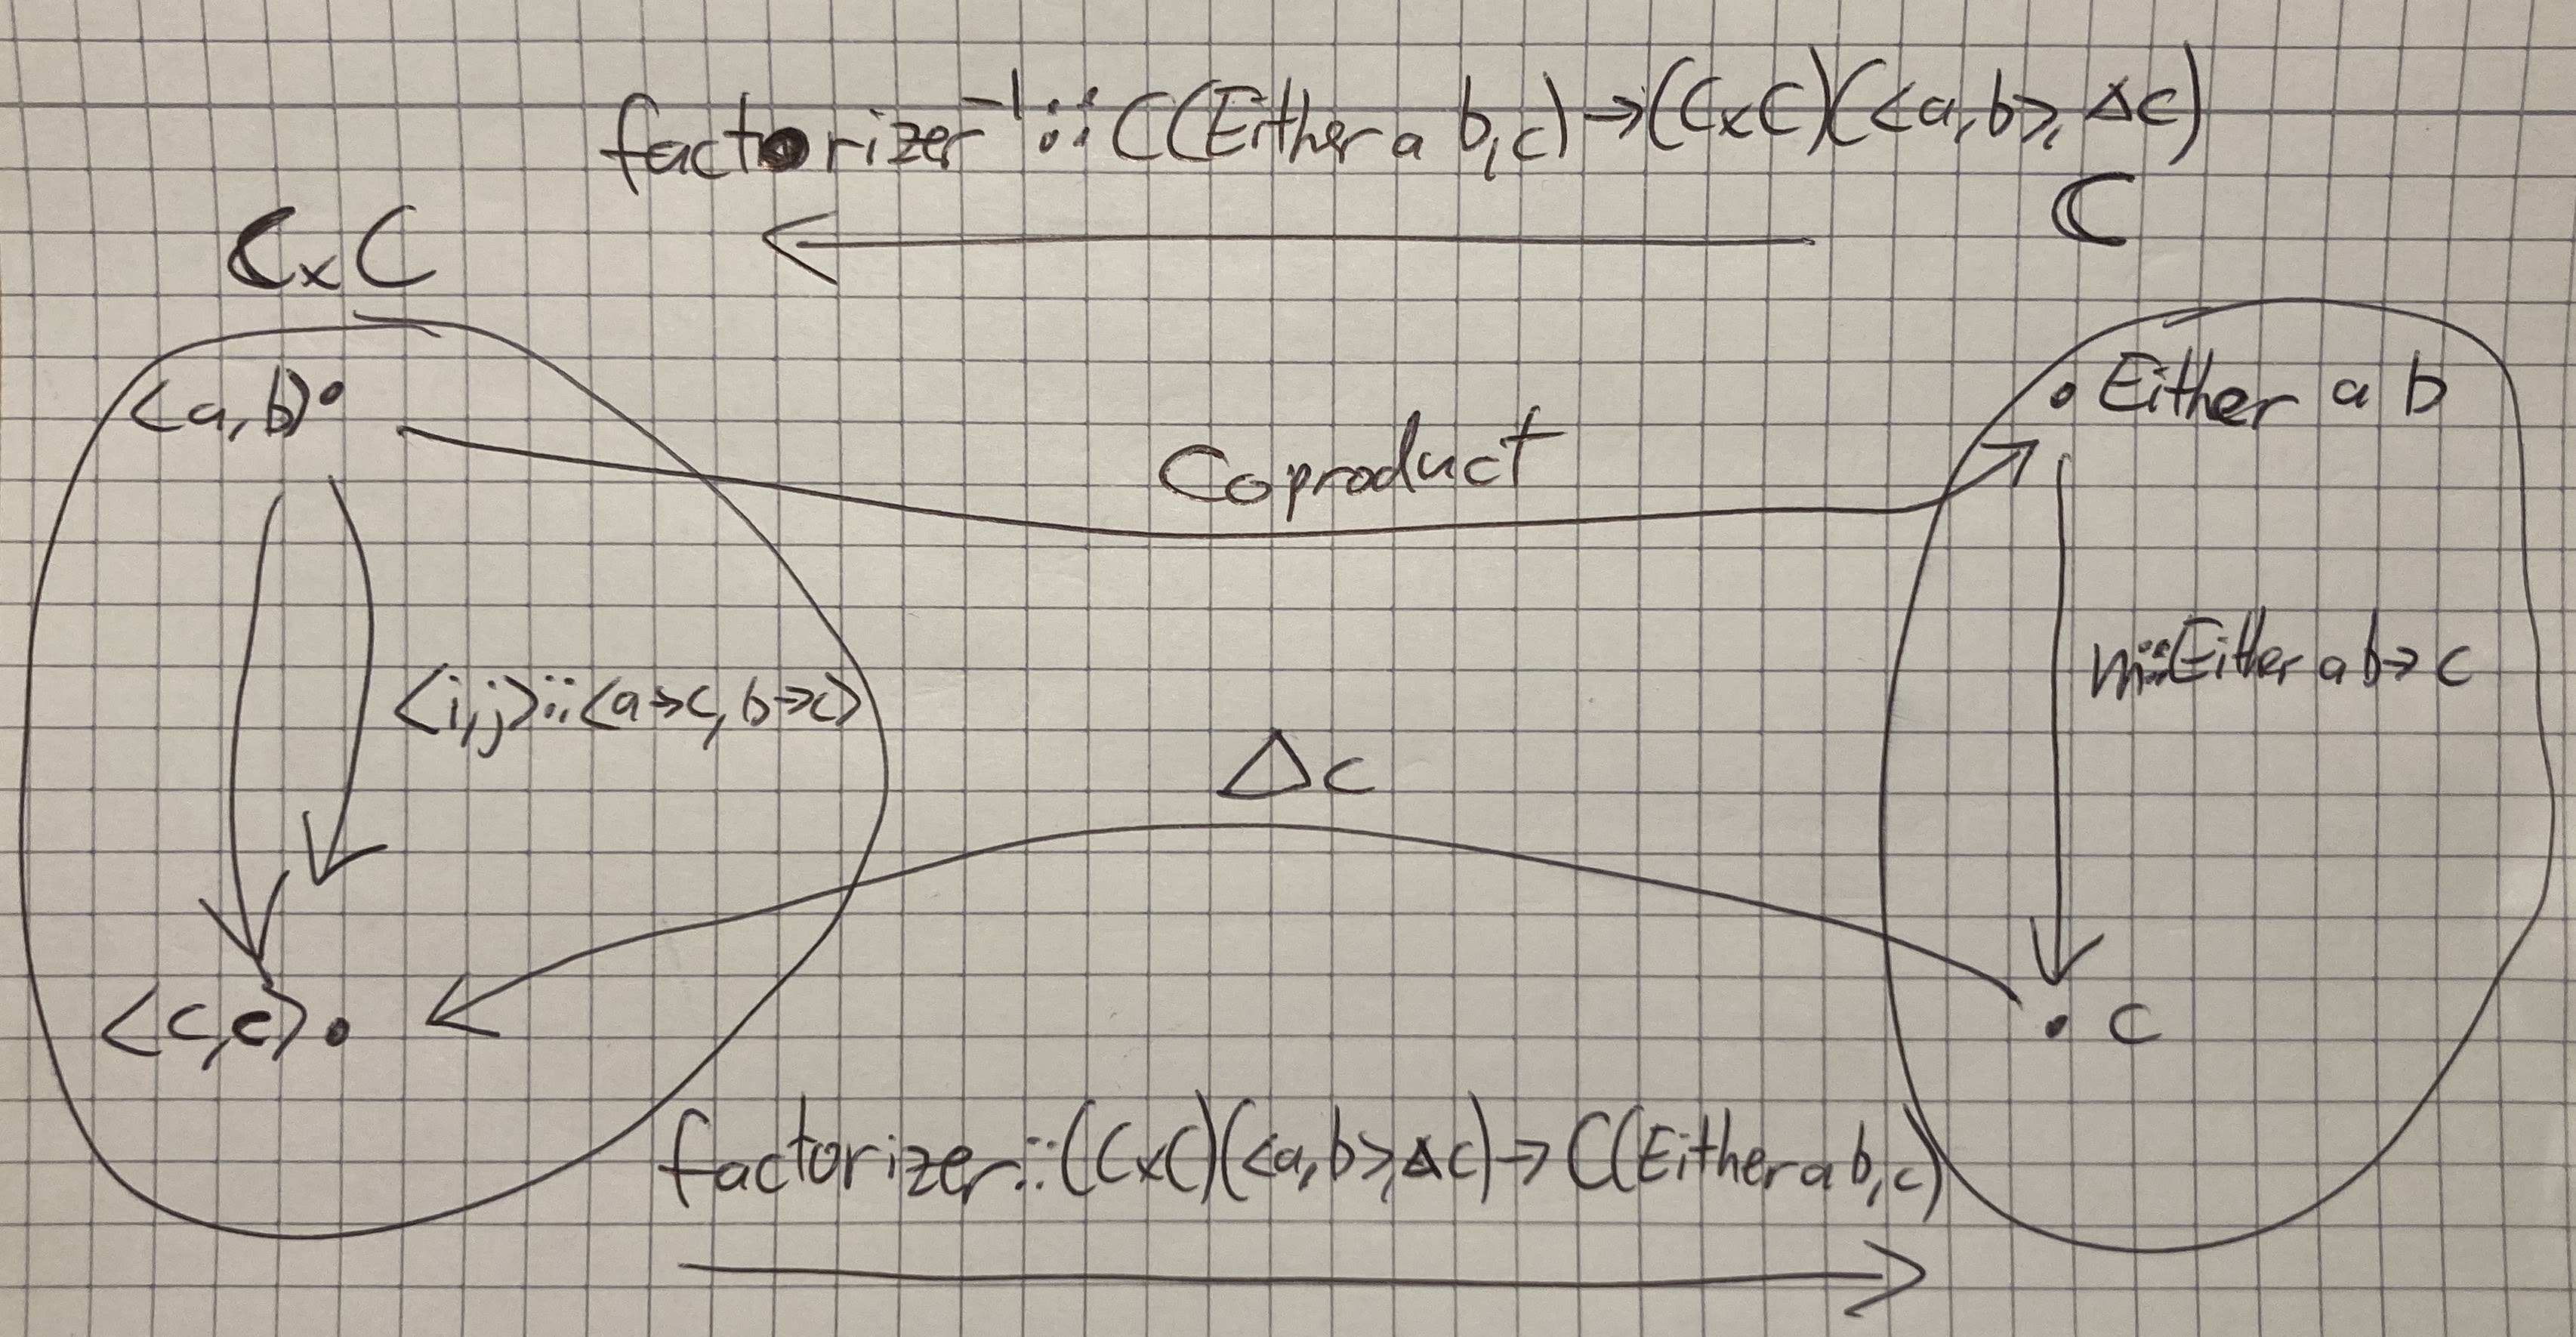 factorizer⁻¹ :: C(Either a b, c) → (C×C)(<a, b>, Δc)
C×C
C
<a, b>
Either a b
Coproduct
<i, j> :: <a→c, b→c>
m :: Either a b → c
Δc
<c, c>
c
factorizer :: (C×C)(<a, b>, Δc) → C(Either a b, c)